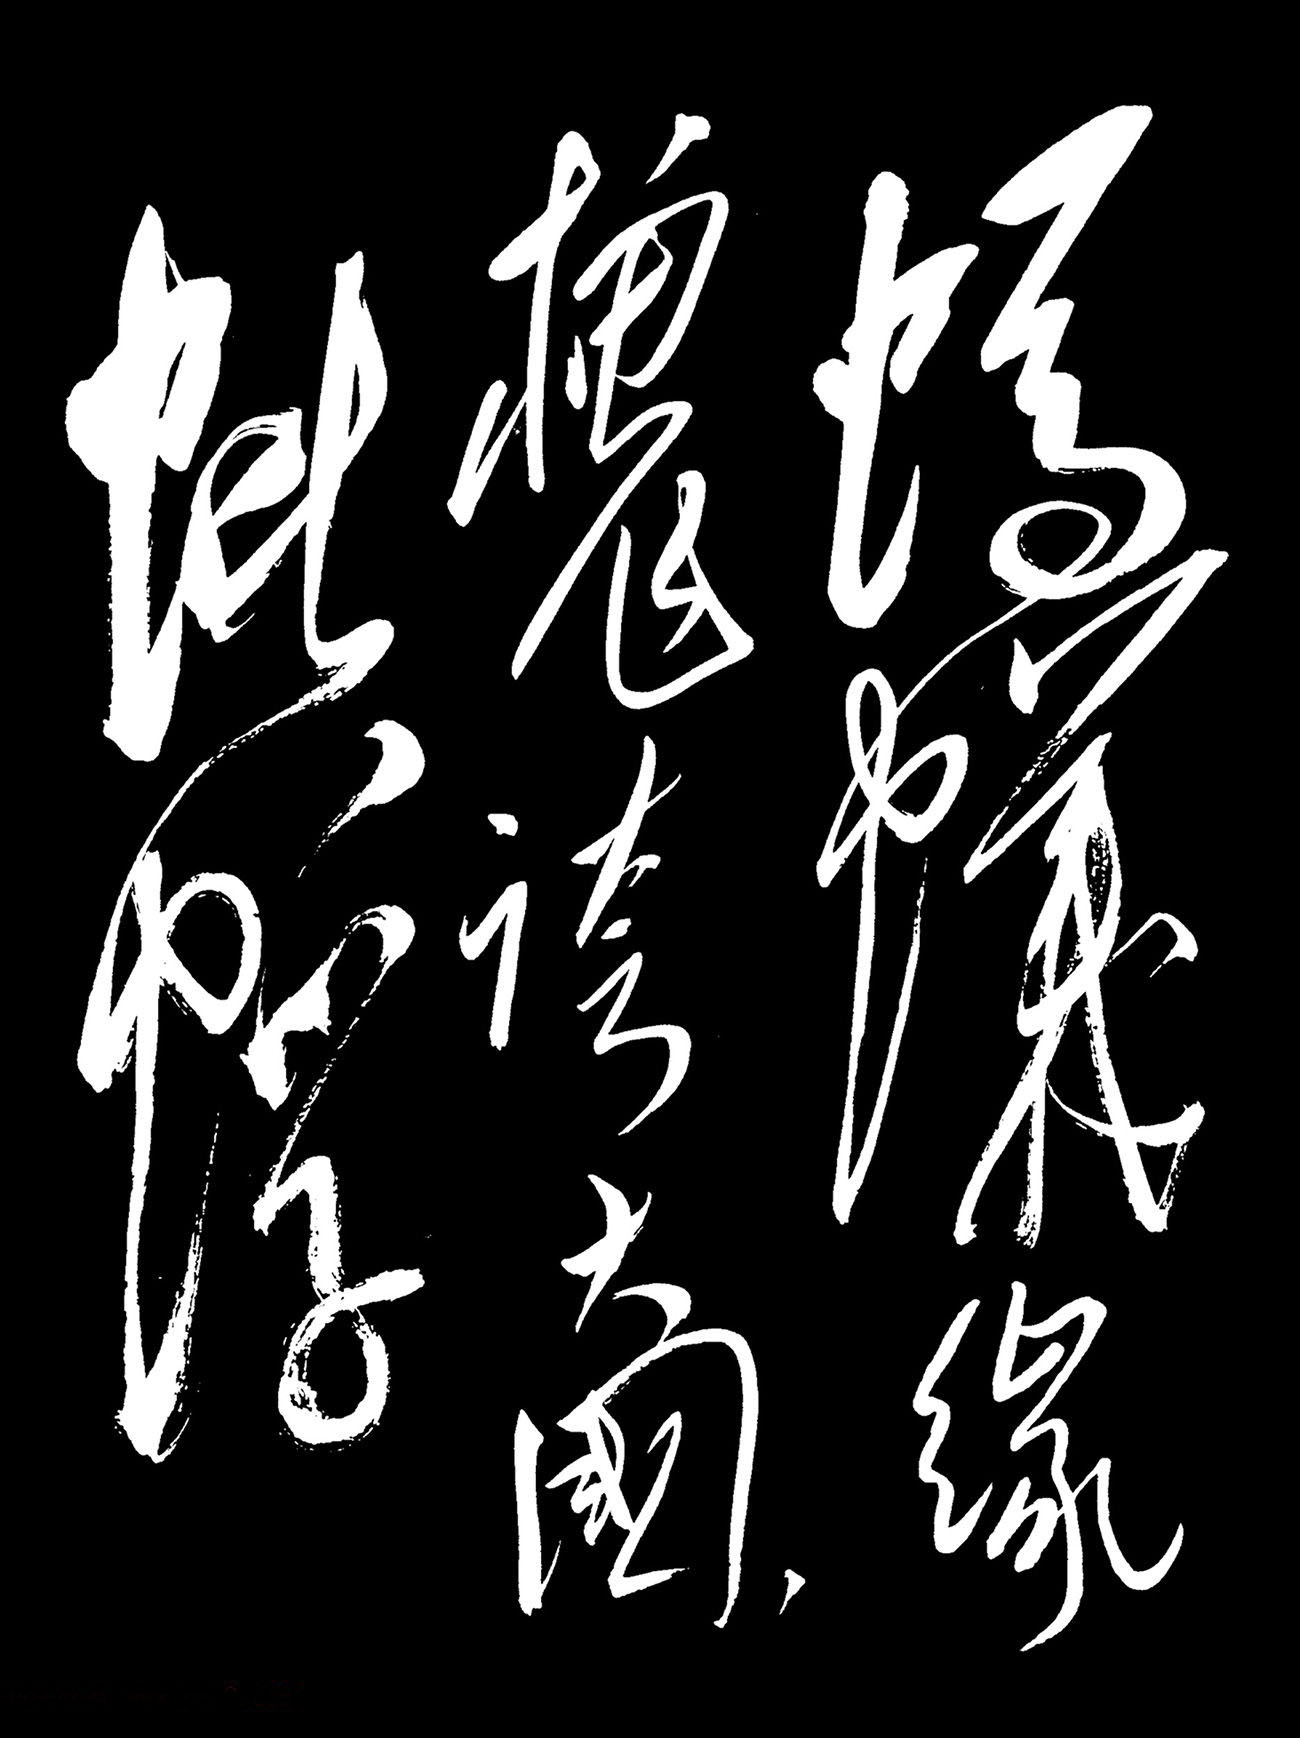 螞蟻緣
槐誇大國，
蚍蜉